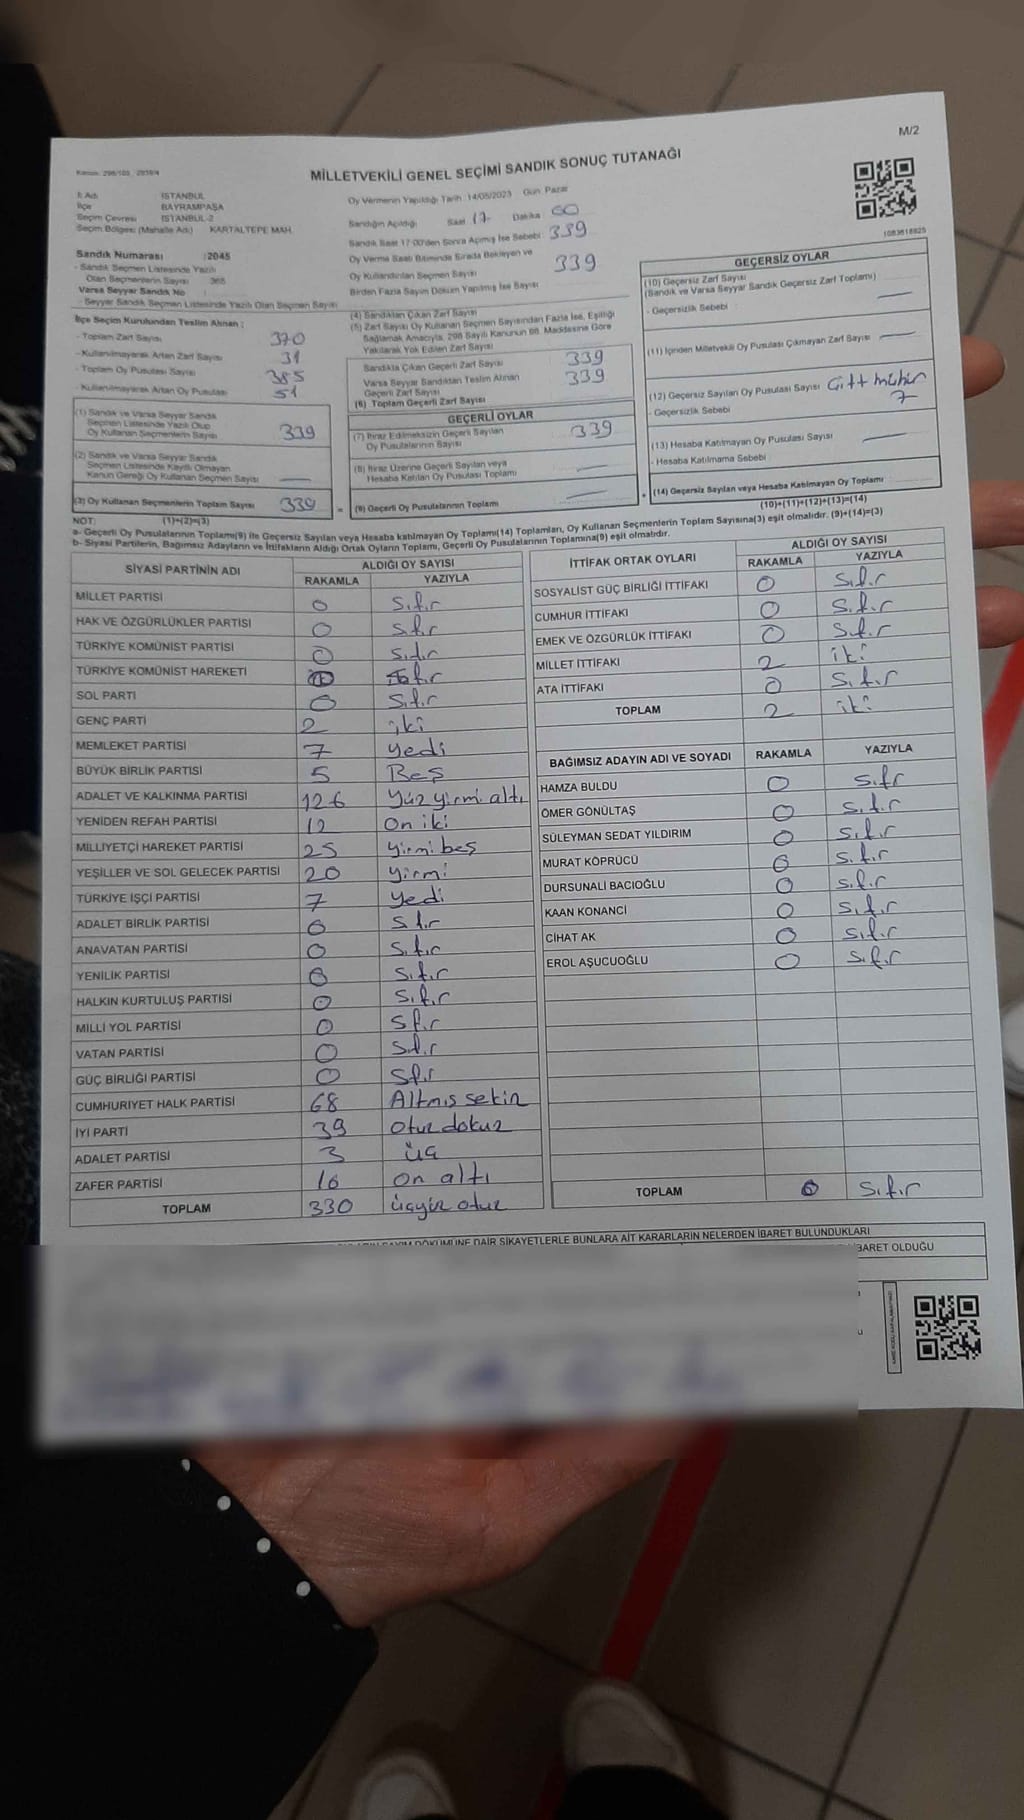 M/2
Kanun: 298/105 2839/4
MİLLETVEKİLİ GENEL SEÇİMİ SANDIK SONUÇ TUTANAĞI
İl Adı : İSTANBUL
İlçe : BAYRAMPAŞA
Seçim Çevresi : İSTANBUL-2
Seçim Bölgesi (Mahalle Adı) KARTALTEPE MAH.
Sandık Numarası :2045
- Sandık Seçmen Listesinde Yazılı
Olan Seçmenlerin Sayısı : 365
Varsa Seyyar Sandık No :
- Seyyar Sandık Seçmen Listesinde Yazılı Olan Seçmen Sayısı :
İlçe Seçim Kurulundan Teslim Alınan :
- Toplam Zarf Sayısı 370
- Kullanılmayarak Artan Zarf Sayısı 31
- Toplam Oy Pusulası Sayısı 385
- Kullanılmayarak Artan Oy Pusulası 51
(1) Sandık ve Varsa Seyyar Sandık
Seçmen Listesinde Yazılı Olup
Oy Kullanan Seçmenlerin Sayısı 339
(2) Sandık ve Varsa Seyyar Sandık
Seçmen Listesinde Kayıtlı Olmayan
Kanun Gereği Oy Kullanan Seçmen Sayısı —
(3) Oy Kullanan Seçmenlerin Toplam Sayısı 339 =
Oy Vermenin Yapıldığı Tarih :14/05/2023 Gün: Pazar
Sandığın Açıldığı Saat 17- Dakika 00
Sandık Saat 17:00'den Sonra Açılmış İse Sebebi : 339
Oy Verme Saati Bitiminde Sırada Bekleyen ve
Oy Kullandırılan Seçmen Sayısı 339
Birden Fazla Sayım Döküm Yapılmış İse Sayısı
(4) Sandıktan Çıkan Zarf Sayısı
(5) Zarf Sayısı Oy Kullanan Seçmen Sayısından Fazla İse, Eşitliği
Sağlamak Amacıyla, 298 Sayılı Kanunun 98. Maddesine Göre
Yakılarak Yok Edilen Zarf Sayısı
Sandıkta Çıkan Geçerli Zarf Sayısı 339
Varsa Seyyar Sandıktan Teslim Alınan 339
Geçerli Zarf Sayısı
(6) Toplam Geçerli Zarf Sayısı
GEÇERLİ OYLAR
(7) İtiraz Edilmeksizin Geçerli Sayılan
Oy Pusulalarının Sayısı 339
(8) İtiraz Üzerine Geçerli Sayılan veya
Hesaba Katılan Oy Pusulası Toplamı —
(9) Geçerli Oy Pusulalarının Toplamı — +
1083618825
GEÇERSİZ OYLAR
(10) Geçersiz Zarf Sayısı
(Sandık ve Varsa Seyyar Sandık Geçersiz Zarf Toplamı) —
- Geçersizlik Sebebi :
(11) İçinden Milletvekili Oy Pusulası Çıkmayan Zarf Sayısı —
(12) Geçersiz Sayılan Oy Pusulası Sayısı Çift mühür
- Geçersizlik Sebebi : 7
(13) Hesaba Katılmayan Oy Pusulası Sayısı —
- Hesaba Katılmama Sebebi :
(14) Geçersiz Sayılan veya Hesaba Katılmayan Oy Toplamı
NOT: (1)+(2)=(3) (10)+(11)+(12)+(13)=(14)
a- Geçerli Oy Pusulalarının Toplamı(9) ile Geçersiz Sayılan veya Hesaba katılmayan Oy Toplamı(14) Toplamları, Oy Kullanan Seçmenlerin Toplam Sayısına(3) eşit olmalıdır. (9)+(14)=(3)
b- Siyasi Partilerin, Bağımsız Adayların ve İttifakların Aldığı Ortak Oyların Toplamı, Geçerli Oy Pusulalarının Toplamına(9) eşit olmalıdır.
SİYASİ PARTİNİN ADI ALDIĞI OY SAYISI
RAKAMLA YAZIYLA
MİLLET PARTİSİ 0 Sıfır
HAK VE ÖZGÜRLÜKLER PARTİSİ 0 Sıfır
TÜRKİYE KOMÜNİST PARTİSİ 0 Sıfır
TÜRKİYE KOMÜNİST HAREKETİ
SOL PARTİ 0 Sıfır
GENÇ PARTİ 2 iki
MEMLEKET PARTİSİ 7 yedi
BÜYÜK BİRLİK PARTİSİ 5 Beş
ADALET VE KALKINMA PARTİSİ 126 Yüz yirmi altı
YENİDEN REFAH PARTİSİ 12 On iki
MİLLİYETÇİ HAREKET PARTİSİ 25 yirmi beş
YEŞİLLER VE SOL GELECEK PARTİSİ 20 yirmi
TÜRKİYE İŞÇİ PARTİSİ 7 yedi
ADALET BİRLİK PARTİSİ 0 Sıfır
ANAVATAN PARTİSİ 0 Sıfır
YENİLİK PARTİSİ 0 Sıfır
HALKIN KURTULUŞ PARTİSİ 0 Sıfır
MİLLİ YOL PARTİSİ 0 Sıfır
VATAN PARTİSİ 0 Sıfır
GÜÇ BİRLİĞİ PARTİSİ 0 Sıfır
CUMHURİYET HALK PARTİSİ 68 Altmış sekiz
İYİ PARTİ 39 otuz dokuz
ADALET PARTİSİ 3 üç
ZAFER PARTİSİ 16 on altı
TOPLAM 330 üçyüz otuz
İTTİFAK ORTAK OYLARI ALDIĞI OY SAYISI
RAKAMLA YAZIYLA
SOSYALİST GÜÇ BİRLİĞİ İTTİFAKI 0 Sıfır
CUMHUR İTTİFAKI 0 Sıfır
EMEK VE ÖZGÜRLÜK İTTİFAKI 0 Sıfır
MİLLET İTTİFAKI 2 iki
ATA İTTİFAKI 0 Sıfır
TOPLAM 2 iki
BAĞIMSIZ ADAYIN ADI VE SOYADI RAKAMLA YAZIYLA
HAMZA BULDU 0 sıfır
ÖMER GÖNÜLTAŞ 0 sıfır
SÜLEYMAN SEDAT YILDIRIM 0 sıfır
MURAT KÖPRÜCÜ 0 sıfır
DURSUNALİ BACIOĞLU 0 sıfır
KAAN KONANCİ 0 sıfır
CİHAT AK 0 sıfır
EROL AŞUCUOĞLU 0 sıfır
TOPLAM 0 Sıfır
DÖKÜMÜNE DAİR ŞİKAYETLERLE BUNLARA AİT KARARLARIN NELERDEN İBARET BULUNDUKLARI
İBARET OLDUĞU